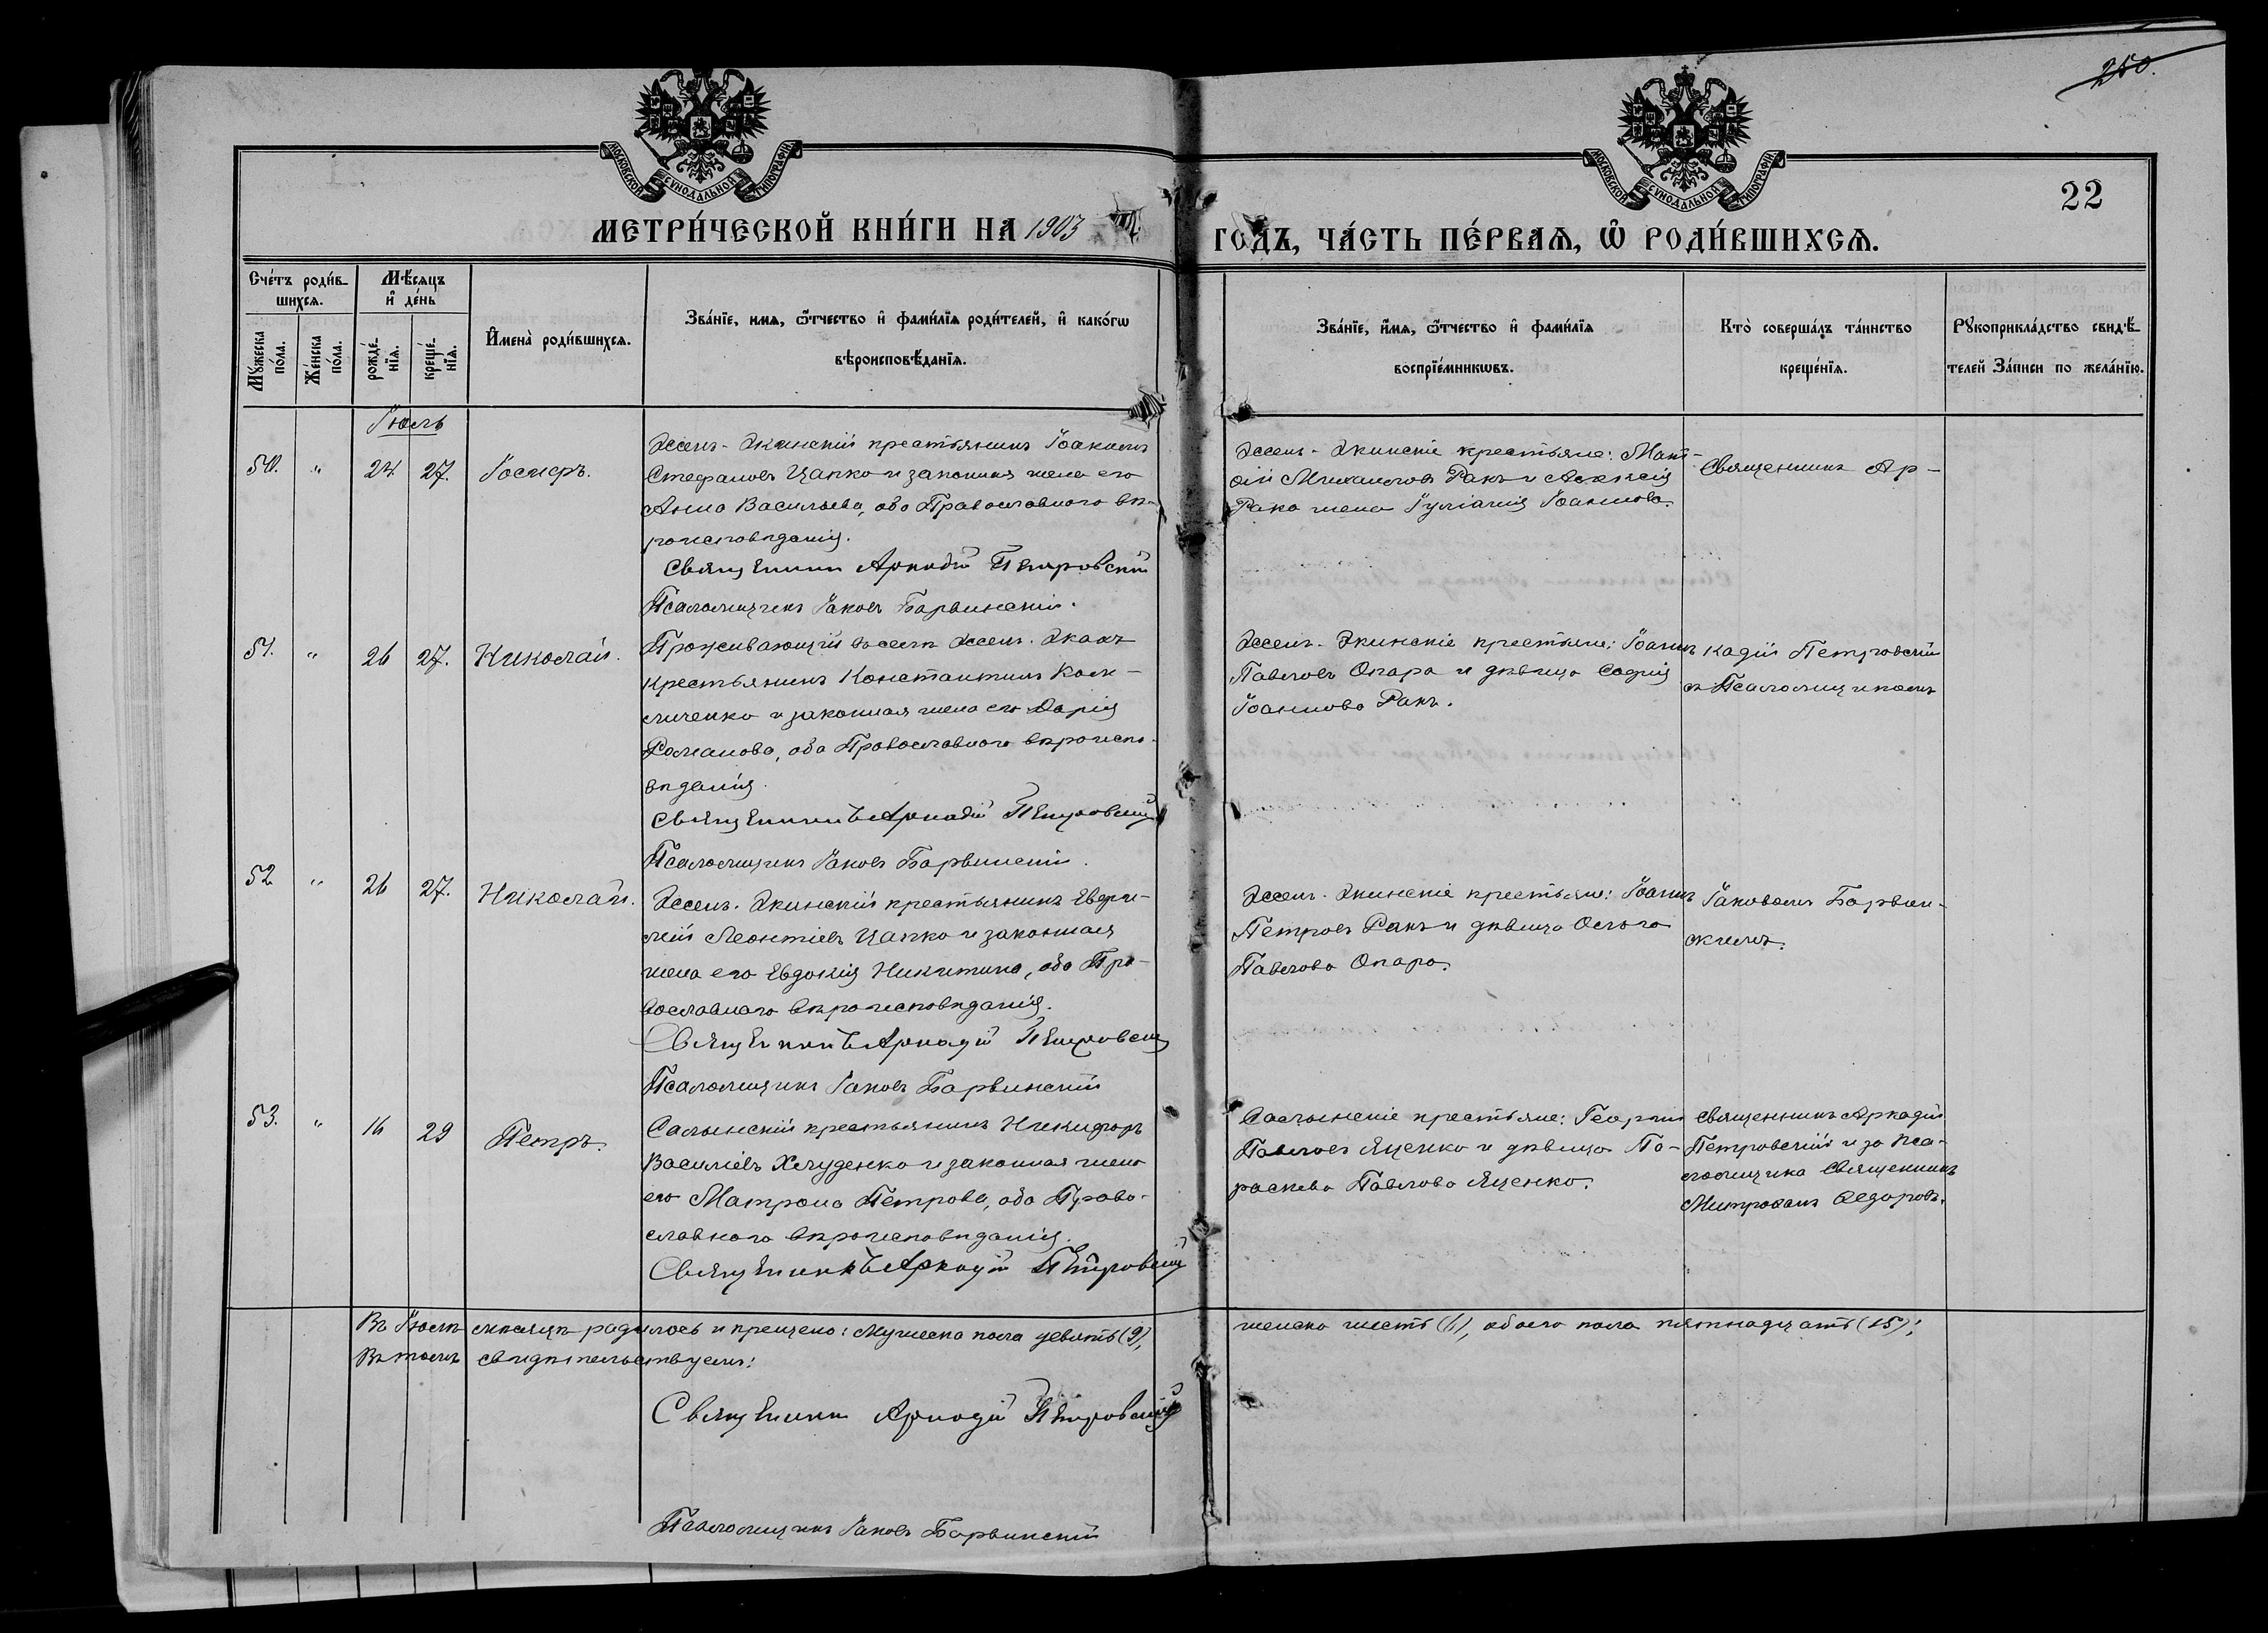 250.
22
МОСКОВСКОЙ СѴНОДАЛЬНОЙ ТИПОГРАФІИ
МОСКОВСКОЙ СѴНОДАЛЬНОЙ ТИПОГРАФІИ
МЕТРИ́ЧЕСКОЙ КНИ́ГИ НА 1903 ГОДЪ, ЧА́СТЬ ПЕ́РВАѦ, Ѡ РОДИ́ВШИХСѦ.
Сче́тъ роди́в-
шихсѧ.
Мѣсѧцъ
и҆ де́нь
Мꙋжеска
по́ла.
Же́нска
по́ла.
рожде́-
нїѧ.
креще́-
нїѧ.
И҆мена̀ роди́вшихсѧ.
Зва́нїе, имѧ, ѻ҆́тчество и҆ фами́лїѧ роди́телей, и҆ како́гѡ
вѣроисповѣ́данїѧ.
Зва́нїе, и҆́мѧ, ѻ҆́тчество и҆ фами́лїѧ
воспрїе́мникѡвъ.
Кто̀ соверша́лъ та́инство
креще́нїѧ.
Рꙋкоприкла́дство свидѣ́-
телей За́писи по жела́нїю.
Іюль
50. " 24 27. Іосифъ.
Эссенъ-Экинскій крестьянинъ Іоакимъ
Стефановъ Цапко и законная жена его
Анна Васильева, оба Православнаго вѣ-
роисповѣданія.
Священникъ Аркадій Петровскій
Псаломщикъ Іаковъ Барвинскій.
Эссенъ-Экинскіе крестьяне:
Михаиловъ Ракъ и
Рака жена Іуліанія Іоаннова.
Священникъ Ар-
51. " 26 27. Николай.
Проживающій въ селѣ Эссенъ-Экахъ
крестьянинъ Константинъ
и законная жена его Дарія
Романова, оба Православнаго вѣроиспо-
вѣданія.
Священникъ Аркадій Петровскій
Псаломщикъ Іаковъ Барвинскій.
Эссенъ-Экинскіе крестьяне: Іоаннъ
Павловъ Опара и дѣвица Софія
Іоаннова Ракъ.
кадій Петровскій
съ Псаломщикомъ
52 " 26 27. Николай.
Эссенъ-Экинскій крестьянинъ Евфи-
мій Леонтіевъ Цапко и законная
жена его Евдокія Никитина, оба Пра-
вославнаго вѣроисповѣданія.
Священникъ Аркадій Петровскій
Псаломщикъ Іаковъ Барвинскій
Эссенъ-Экинскіе крестьяне: Іоаннъ
Петровъ Ракъ и дѣвица Ольга
Павлова Опара.
Іаковомъ Барвин-
скимъ.
53. " 16 29 Петръ.
Салынскій крестьянинъ Никифоръ
Василіевъ Хлуденко и законная жена
его Матрона Петрова, оба Право-
славнаго вѣроисповѣданія.
Священникъ Аркадій Петровскій
Салынскіе крестьяне: Георгій
Павловъ Яценко и дѣвица Па-
раскева Павлова Яценко.
Священникъ Аркадій
Петровскій и за Пса-
ломщика Священникъ
Митрофанъ Ѳедоровъ.
Въ Іюлѣ мѣсяцѣ родилось и крещено: Мужеска пола девять (9), женска шесть (6), обоего пола пятнадцать (15);
Въ томъ свидѣтельствуемъ:
Священникъ Аркадій Петровскій
Псаломщикъ Іаковъ Барвинскій